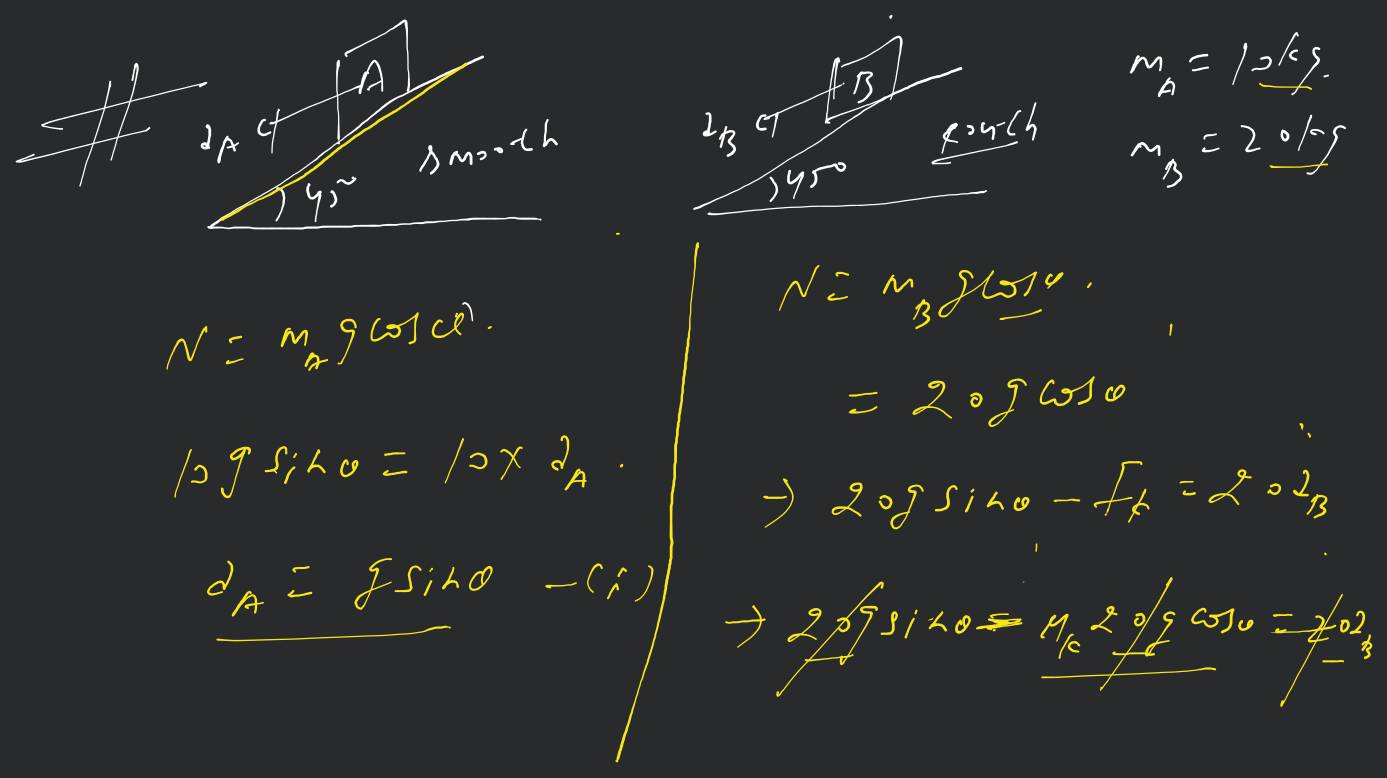 A
a_A
45°
smooth
B
a_B
45°
rough
m_A = 10kg.
m_B = 20kg
N = m_A g cosθ.
10g sinθ = 10 × a_A.
a_A = g sinθ –(i)
N = m_B g cosθ.
= 20g cosθ
→ 20g sinθ – f_k = 20a_B
→ 20g sinθ – μ_k 20g cosθ = 20a_B